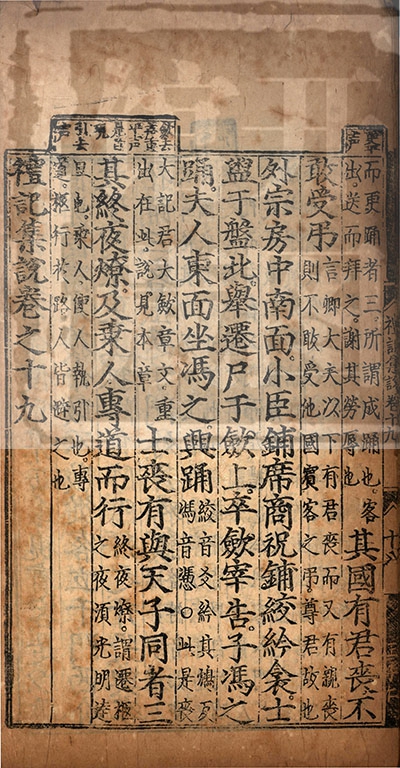 而更踊者三所謂成踊也客
出送而拜之謝其勞辱也
其國有君喪不
敢受弔
言卿大夫以下有君喪而又有親喪
則不敢受他國賓客之弔尊君故也
外宗房中南面小臣鋪席商祝鋪絞紟衾士
盥于盤北舉遷尸于斂上卒斂宰告子馮之
踊夫人東面坐馮之興踊
絞音爻紟其鴆反
馮音憑○此是喪
大記君大斂章文重
出在此說見本章
士喪有與天子同者三
其終夜燎及乘人專道而行
終夜燎謂遷柩
之夜須光明達
旦也乘人使人執引也專
道柩行於路人皆避之也
禮記集說卷之十九